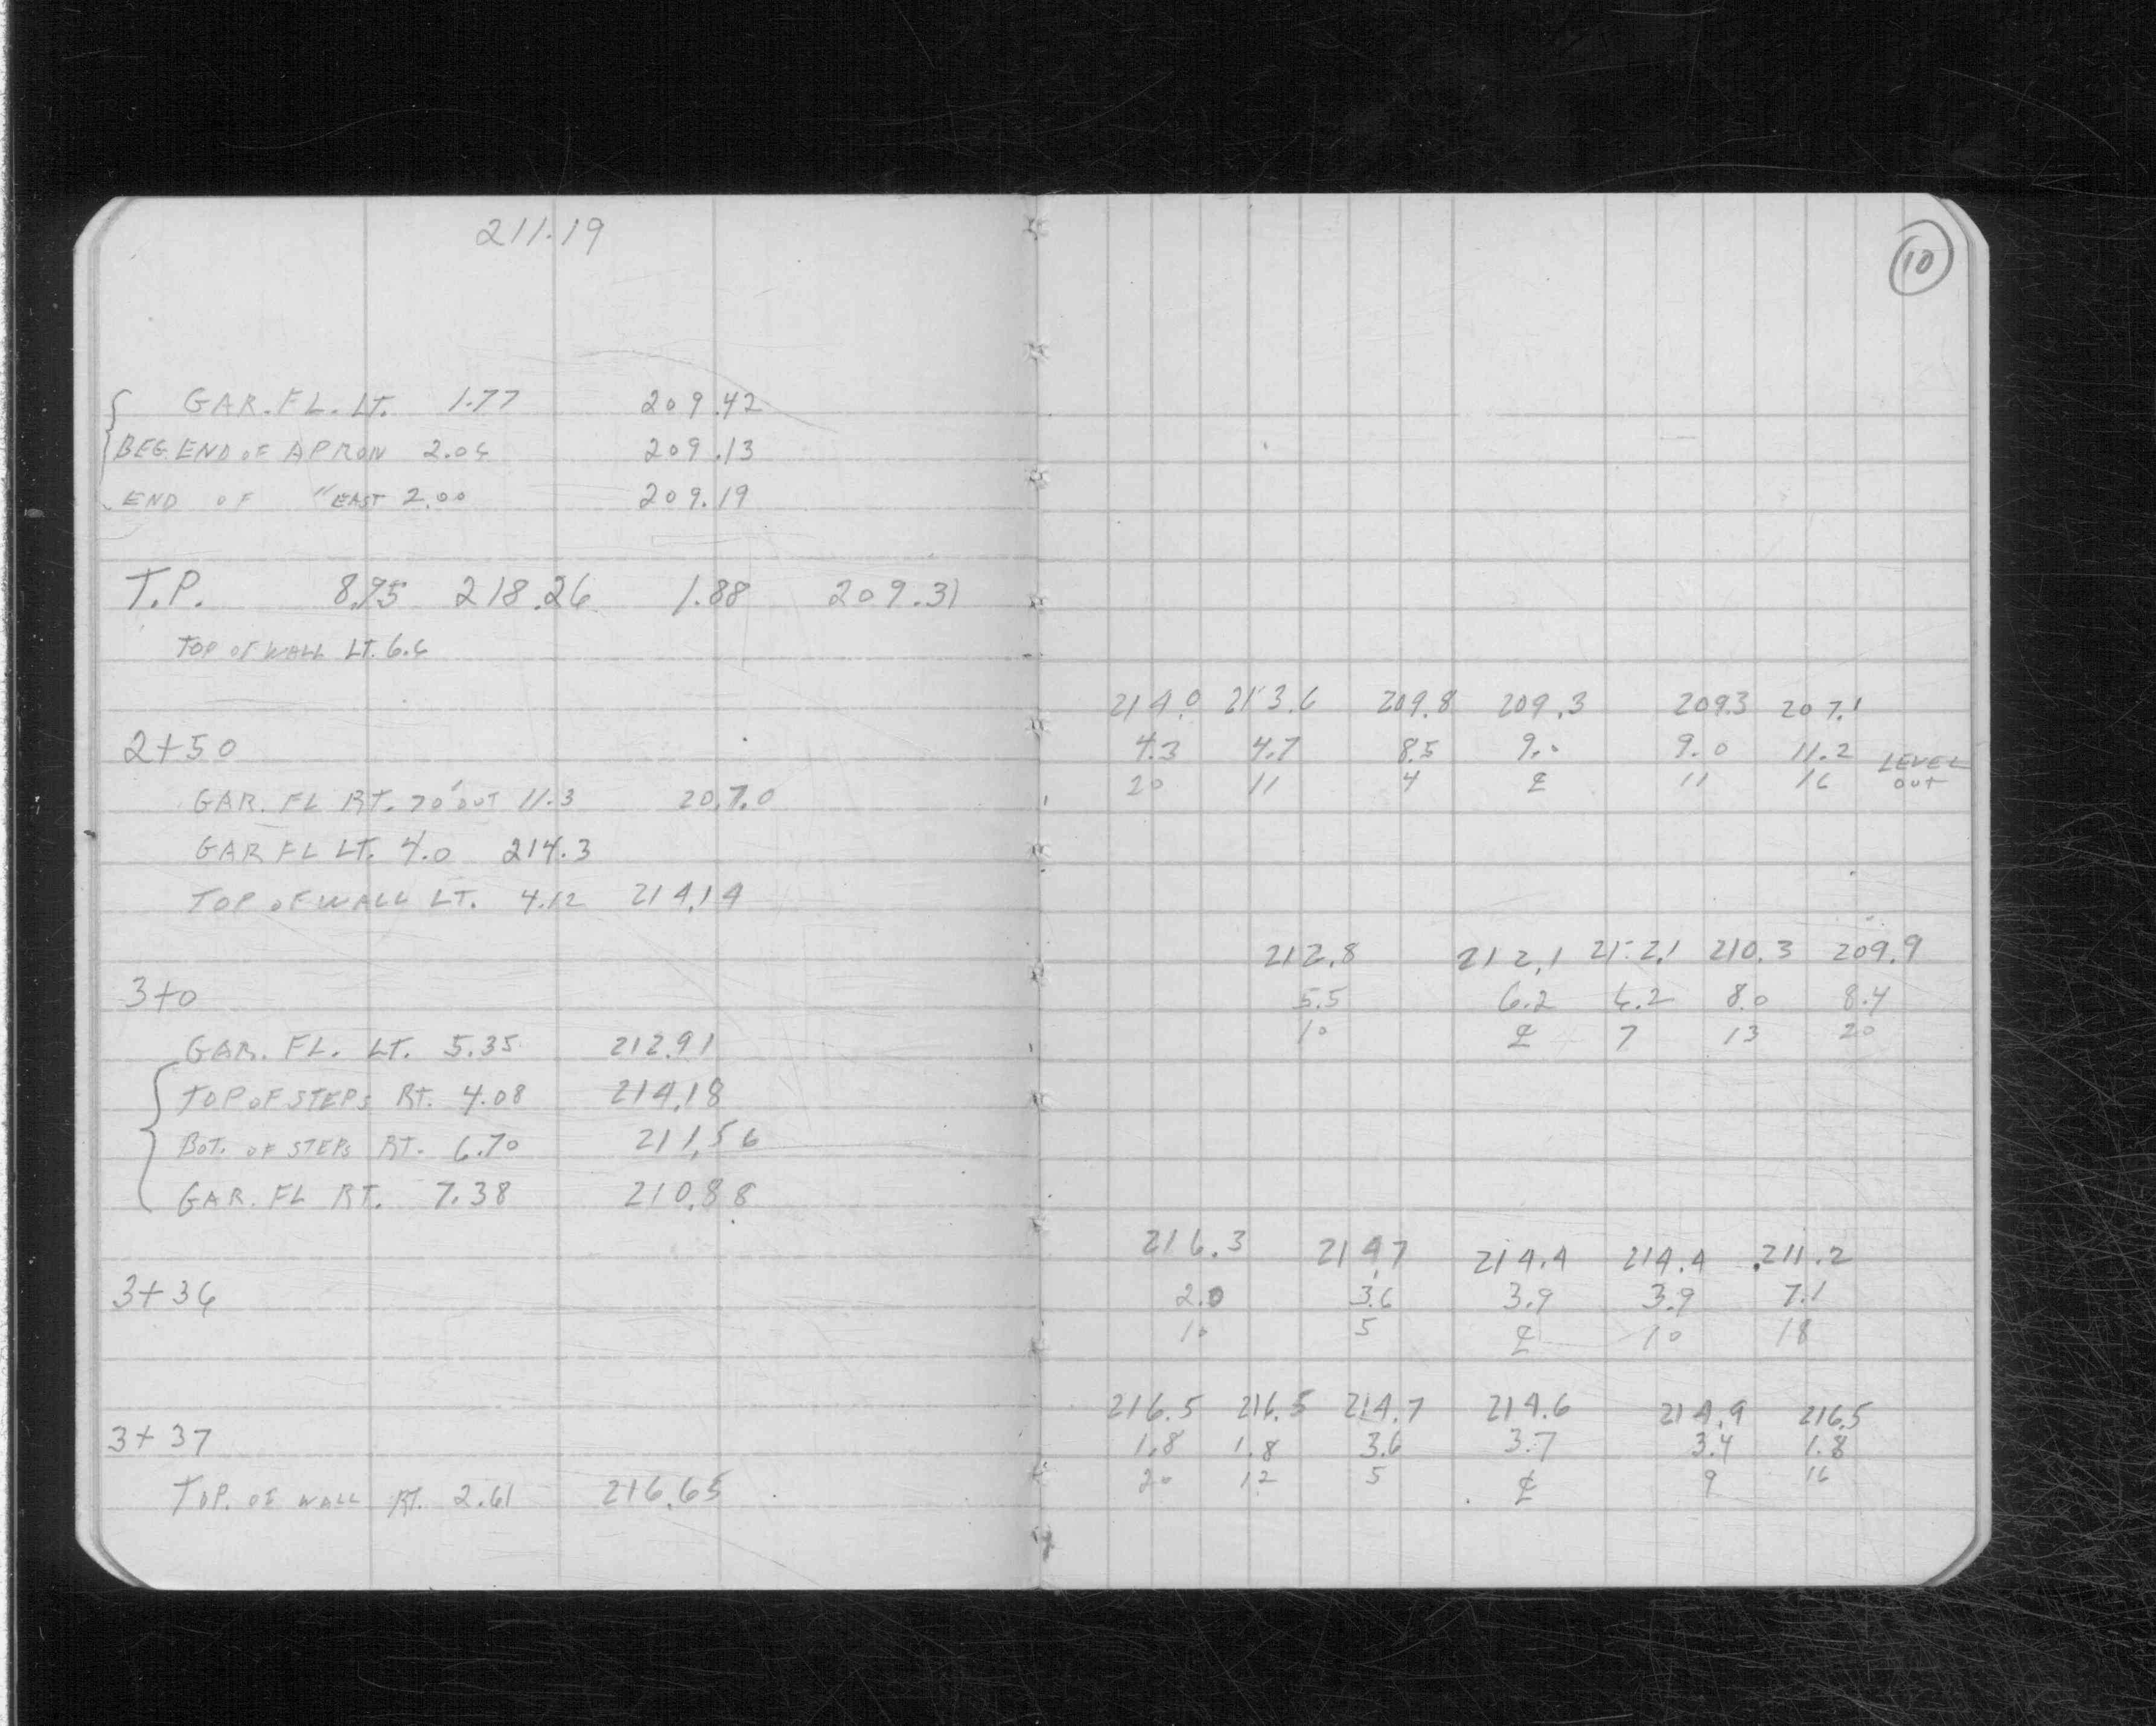 211.19
GAR. FL. LT. 1.77 209.42
BEG. END OF APRON 2.06 209.13
END OF " EAST 2.00 209.19
T.P. 8.95 218.26 1.88 209.31
TOP OF WALL LT. 6.6
2+50
GAR. FL RT. 70' OUT 11.3 207.0
GAR FL LT. 4.0 214.3
TOP OF WALL LT. 4.12 214.14
3+0
GAR. FL. LT. 5.35 212.91
TOP OF STEPS RT. 4.08 214.18
BOT. OF STEPS RT. 6.70 211.56
GAR. FL RT. 7.38 210.88
3+36
3+37
TOP. OF WALL RT. 2.61 216.65
10
214.0 213.6 209.8 209.3 209.3 207.1
4.3 4.7 8.5 9.0 9.0 11.2 LEVEL
20 11 4 ℄ 11 16 OUT
212.8 212.1 212.1 210.3 209.9
5.5 6.2 6.2 8.0 8.4
10 ℄ 7 13 20
216.3 214.7 214.4 214.4 211.2
2.0 3.6 3.9 3.9 7.1
10 5 ℄ 10 18
216.5 216.5 214.7 214.6 214.9 216.5
1.8 1.8 3.6 3.7 3.4 1.8
20 12 5 ℄ 9 16